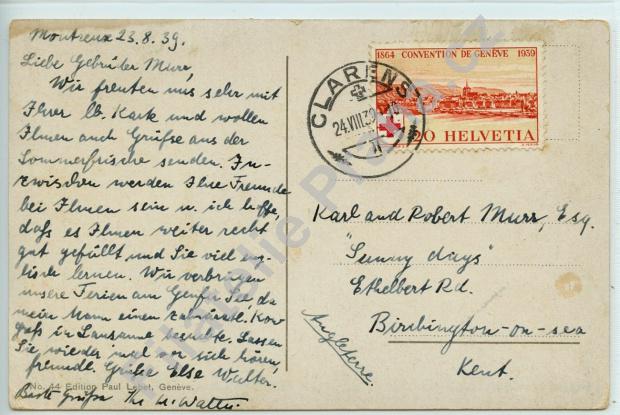 Montreux 23.8.39.
Liebe Gebrüder Murr,
Wir freuten uns sehr mit
Ihrer lb. Karte und wollen
Ihnen auch Grüsse aus der
Sommerfrische senden. In-
zwischen werden Ihre Freunde
bei Ihnen sein u. ich hoffe,
dass es Ihnen weiter recht
gut gefällt und Sie viel eng-
lisch lernen. Wir verbringen
unsere Ferien am Genfer See, da
mein Mann einen zahnärztl. Kon-
gress in Lausanne besuchte. Lassen
Sie wieder mal von sich hören,
freundl. Grüsse Else Walter.
Beste Grüsse Ihr
No. 44 Edition Paul Lebet, Genève.
1864 CONVENTION DE GENÈVE 1939
20 HELVETIA
CLARENS
24.VIII.39
Karl and Robert Murr, Esq.
"Sunny days"
Ethelbert Rd.
Birchington-on-sea
Kent.
Angleterre.